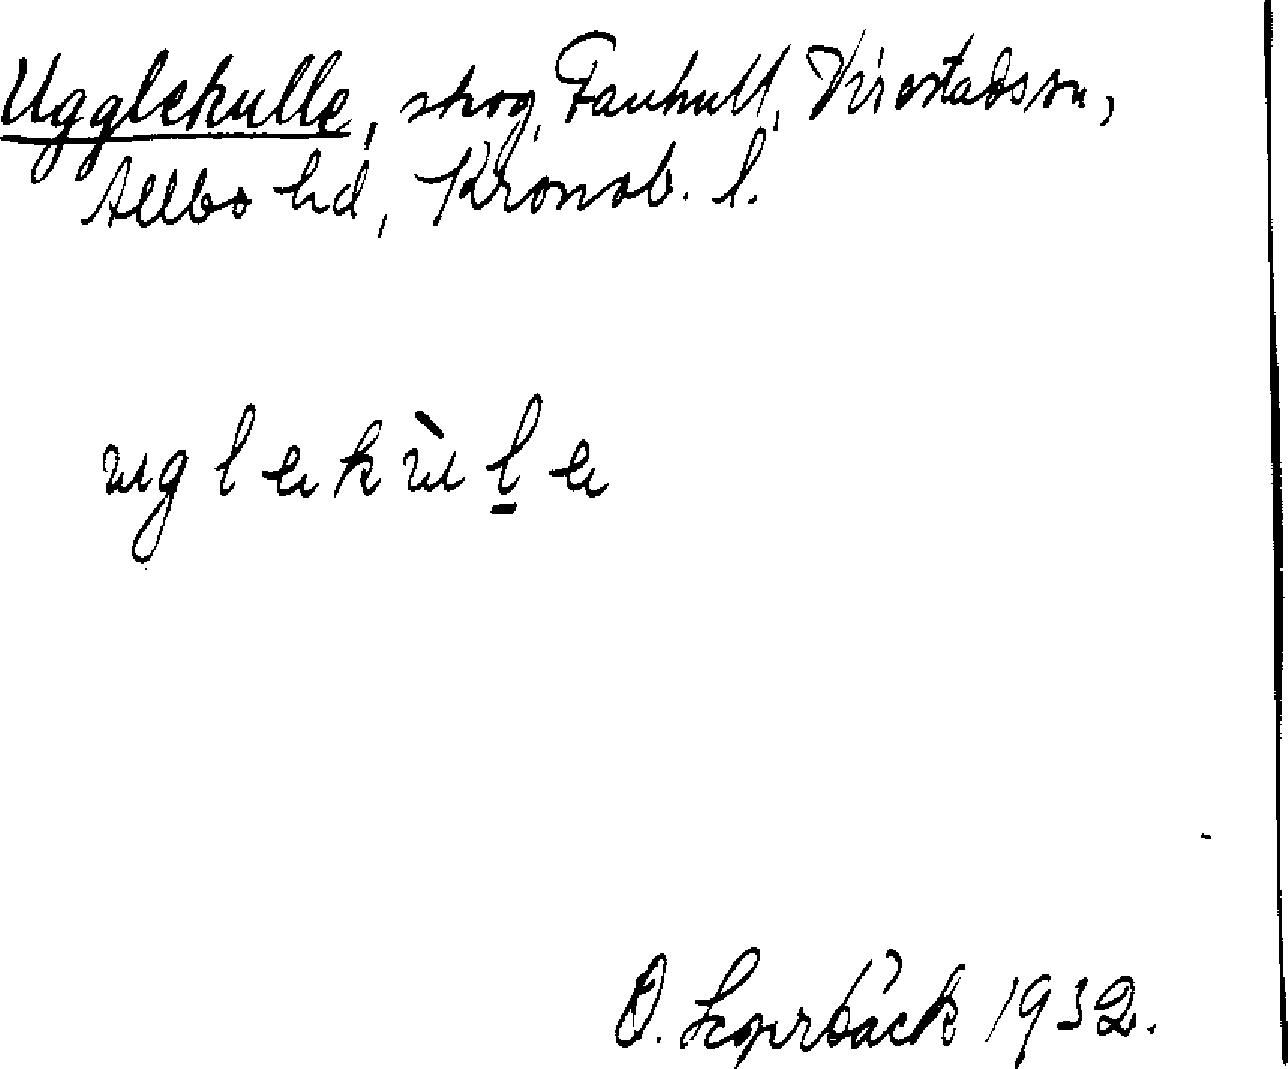 Ugglekulle, skog, Fanhult, Virestads sn,
Allbo hd, Kronob. l.
ugleku̇̀l̠e
O. Loprbäck 1932.